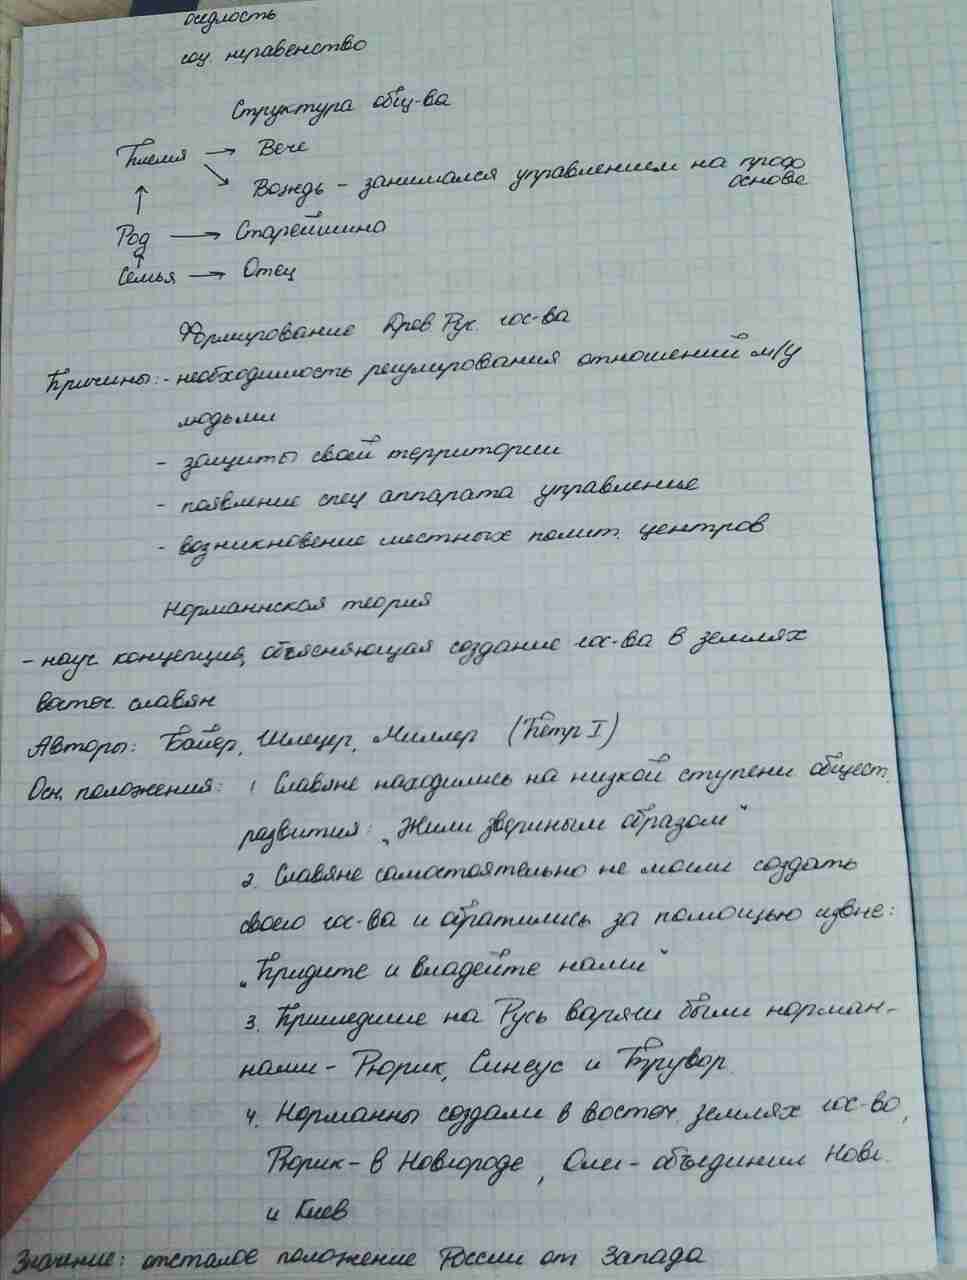 оседлость
соц. неравенство
Структура общ-ва
Племя → Вече
Вождь - занимался управлением на
основе
Род → Старейшина
Семья → Отец
Формирование Древ Рус. гос-ва
Причины: - необходимость регулирования отношений м/у
людьми
- защиты своей территории
- появление спец аппарата управление
- возникновение местных полит. центров
Норманнская теория
- науч. концепция, объясняющая создание гос-ва в землях
восточ. славян
Авторы: Байер, Шлецер, Миллер (Петр I)
Осн. положения: 1 Славяне находились на низкой ступени общест.
развития: „Жили звериным образом"
2. Славяне самостоятельно не могли создать
своего гос-ва и обратились за помощью извне:
„Придите и владейте нами"
3. Пришедшие на Русь варяги были норман-
нами - Рюрик, Синеус и Трувор.
4. Норманны создали в восточ. землях гос-во,
Рюрик - в Новгороде, Олег - объединил Новг.
и Киев
Значение: отсталое положение России от Запада